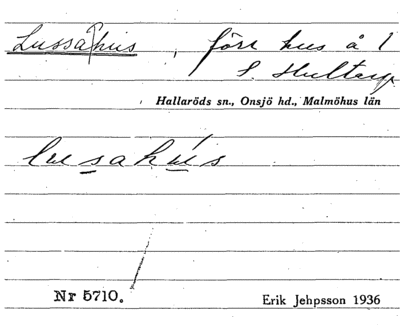 Lussahus, förr hus å 1
S. Hultarp
Hallaröds sn., Onsjö hd., Malmöhus län
lusahús
Nr 5710.
Erik Jehpsson 1936